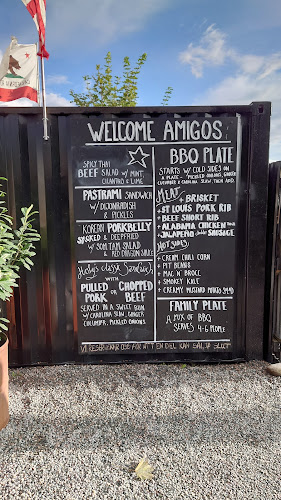 WELCOME AMIGOS
SPICY THAI
BEEF SALAD W/ MINT,
CILANTRO & LIME
PASTRAMI SANDWICH
W/ DIJONKRAUT
& PICKLES
KOREAN PORKBELLY
SMOKED & DEEPFRIED
W/ SOM TAM SALAD
& RED DRAGON SAUCE
Classic Sandwich
WITH
PULLED OR CHOPPED
PORK BEEF
SERVED IN A SWEET BUN
W/ CAROLINA SLAW, GINGER
CUCUMBER, PICKLED ONIONS
BBQ PLATE
STARTS W/ COLD SIDES ON
A PLATE = PICKLED ONIONS, GINGER
CUCUMBER & CAROLINA SLAW, THEN ADD
MEAT
BRISKET
ST LOUIS PORK RIB
BEEF SHORT RIB
ALABAMA CHICKEN THIGH
JALAPENO CHEDDAR SAUSAGE
HOT SIDES
CREAM CHILI CORN
PIT BEANS
MAC N' BROCC
SMOKEY KALE
CREAMY MUSTARD POTATO SALAD
FAMILY PLATE
A MIX OF BBQ
SERVES 4-6 PEOPLE
VI RESERVERAR OSS FÖR ATT EN DEL KAN SÄLJA SLUT